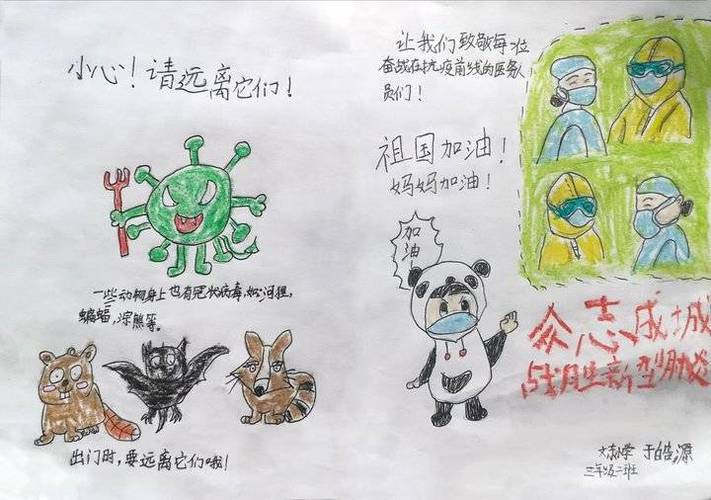 小心！请远离它们！
一些动物身上也有冠状病毒,如河狸,
蝙蝠,浣熊等。
出门时,要远离它们哦！
让我们致敬每位
奋战在抗疫前线的医务人
员们！
祖国加油！
妈妈加油！
加油！
众志成城
战胜新型肺炎
于皓源
三年级二班